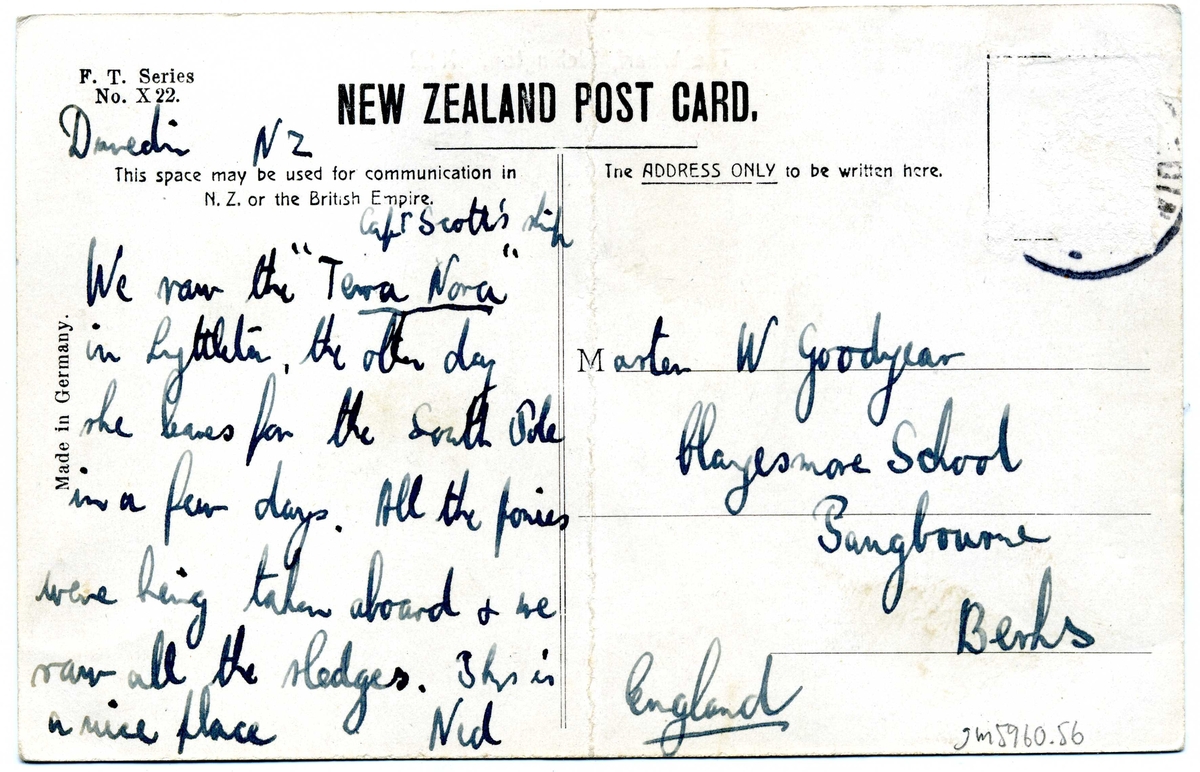 F. T. Series
No. X 22.
NEW ZEALAND POST CARD.
Dunedin NZ
This space may be used for communication in
N. Z. or the British Empire.
Capt Scott's ship
We saw the "Terra Nova"
in Lyttleton, the other day
she leaves for the South Pole
in a few days. All the ponies
were being taken aboard & we
saw all the sledges. This is
a nice place Nid
Made in Germany.
The ADDRESS ONLY to be written here.
Master W Goodyear
Clayesmore School
Pangbourne
Berks
England
gm5960.56